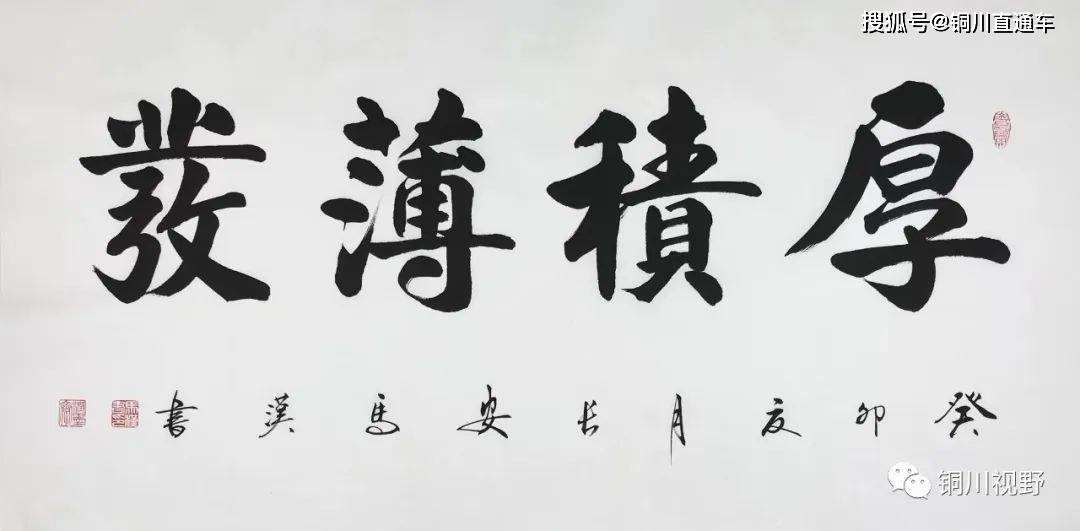 搜狐号@铜川直通车
厚積薄發
癸卯夏月长安馬漢書
铜川视野